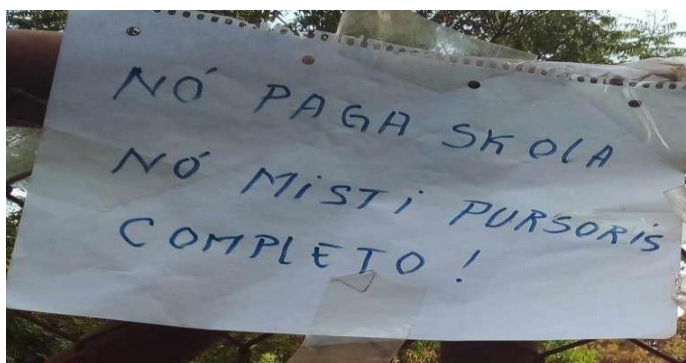 NÓ PAGA SKOLA
NÓ MISTI PURSORIS
COMPLETO!